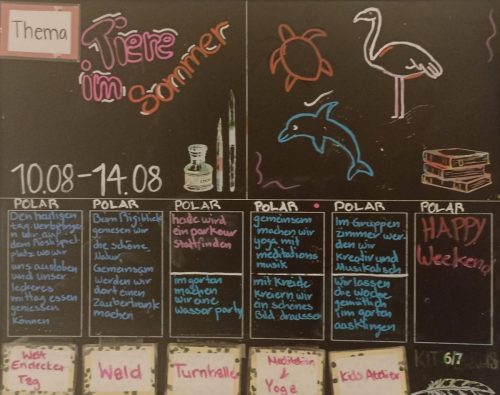 Thema
Tiere
im Sommer
10.08-14.08
POLAR
Den heutigen
tag verbringen
wir auf
dem
platz wo wir
uns austoben
und unser
leckeres
mittag essen
geniessen
können
POLAR
Beim Rigiblick
geniesen wir
die schöne
Natur,
Gemeinsam
werden wir
dort einen
Zaubertrank
machen
POLAR
heute wird
ein parkour
stattfinden
im garten
machen
wir eine
wasser party
POLAR
gemeinsam
machen wir
yoga mit
meditations
musik
mit kreide
kreiern wir
ein schönes
Bild draussen
POLAR
Im Gruppen
zimmer wer-
den wir
kreativ und
Musikalisch
Wir lassen
die woche
gemütlich
im garten
ausklingen
POLAR
HAPPY
Weekend
Welt
Endecker
Tag
Wald
Turnhalle
Meditation
&
Yoga
Kids Atelier
KIT 6/7